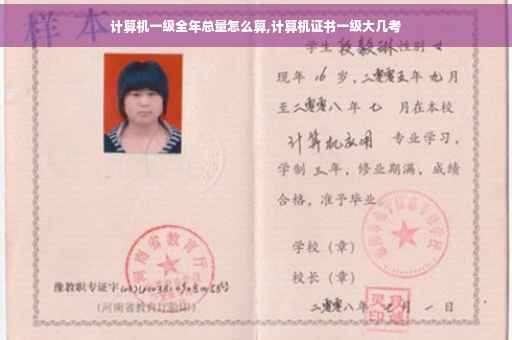 计算机一级全年总量怎么算,计算机证书一级大几考
样本
学生段毅琳性别女
现年16岁,二零零五年九月
至二零零八年七 月在本校
计算机应用 专业学习,
学制三年,修业期满,成绩
合格,准予毕业
学校(章)
校长(章)
二零零八年 月一日
河南省教育厅
豫教职专证字
(河南省教育厅验印)